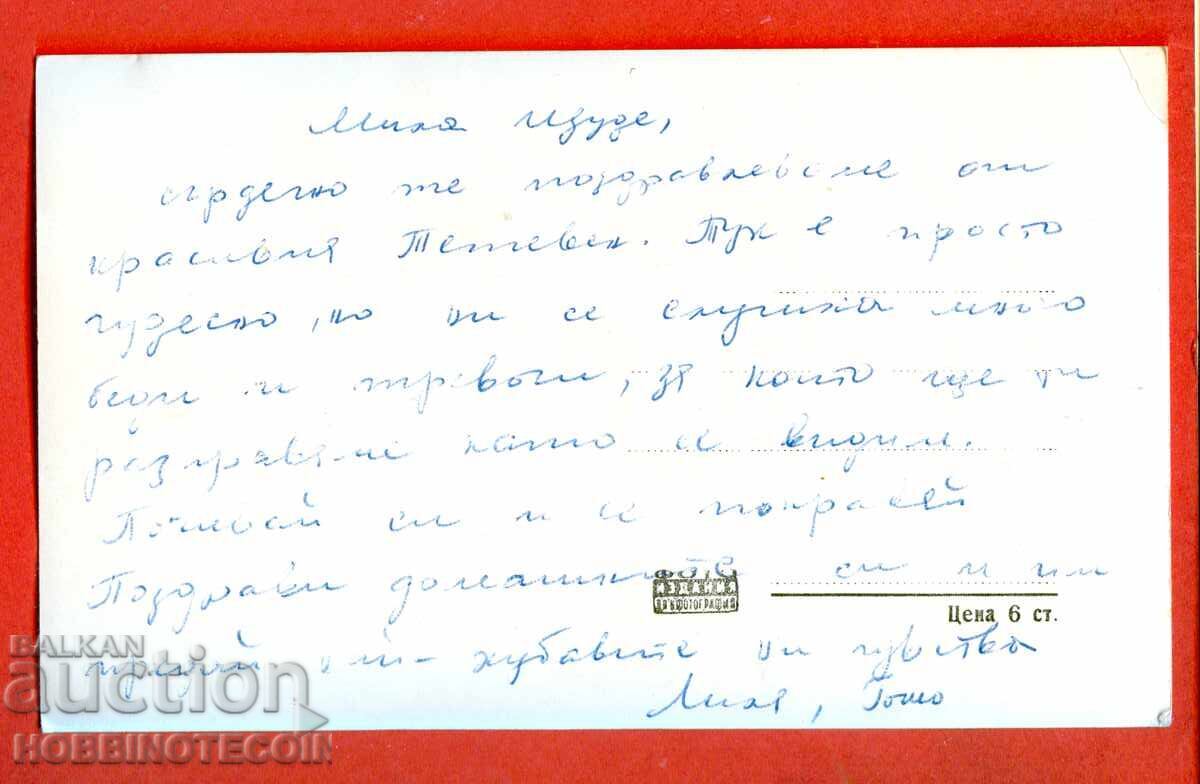 Мила Изуде,
сърдечно те поздравляваме от
красивия Тетевен. Тук е просто
чудесно, но ни се случиха много
беди и тревоги, за които ще ти
разправяме като се видим.
Почивай си и се
Поздрави домашните си и им
предай най-хубавите ни чувства
Лиля, Гошо
ДПК ФОТОГРАФИЯ
Цена 6 ст.
BALKAN
auction
HOBBINOTECOIN